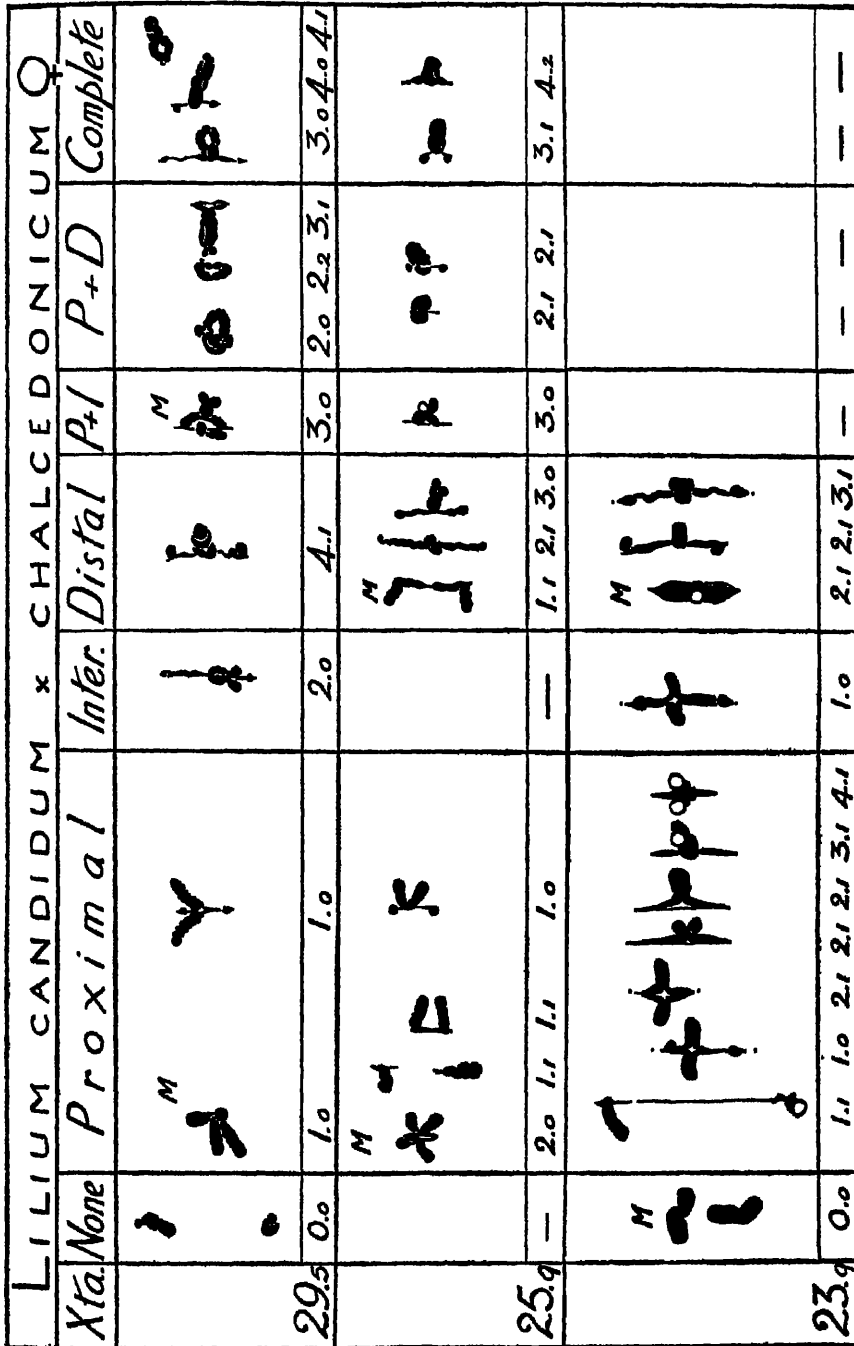 LILIUM CANDIDUM × CHALCEDONICUM ♀
Xta. None Proximal Inter. Distal P+I P+D Complete
M M
29.5 0.0 1.0 1.0 2.0 4.1 3.0 2.0 2.2 3.1 3.0 4.0 4.1
M M
25.9 — 2.0 1.1 1.1 1.0 — 1.1 2.1 3.0 3.0 2.1 2.1 3.1 4.2
M M
23.9 0.0 1.1 1.0 2.1 2.1 2.1 3.1 4.1 1.0 2.1 2.1 3.1 — — — — —